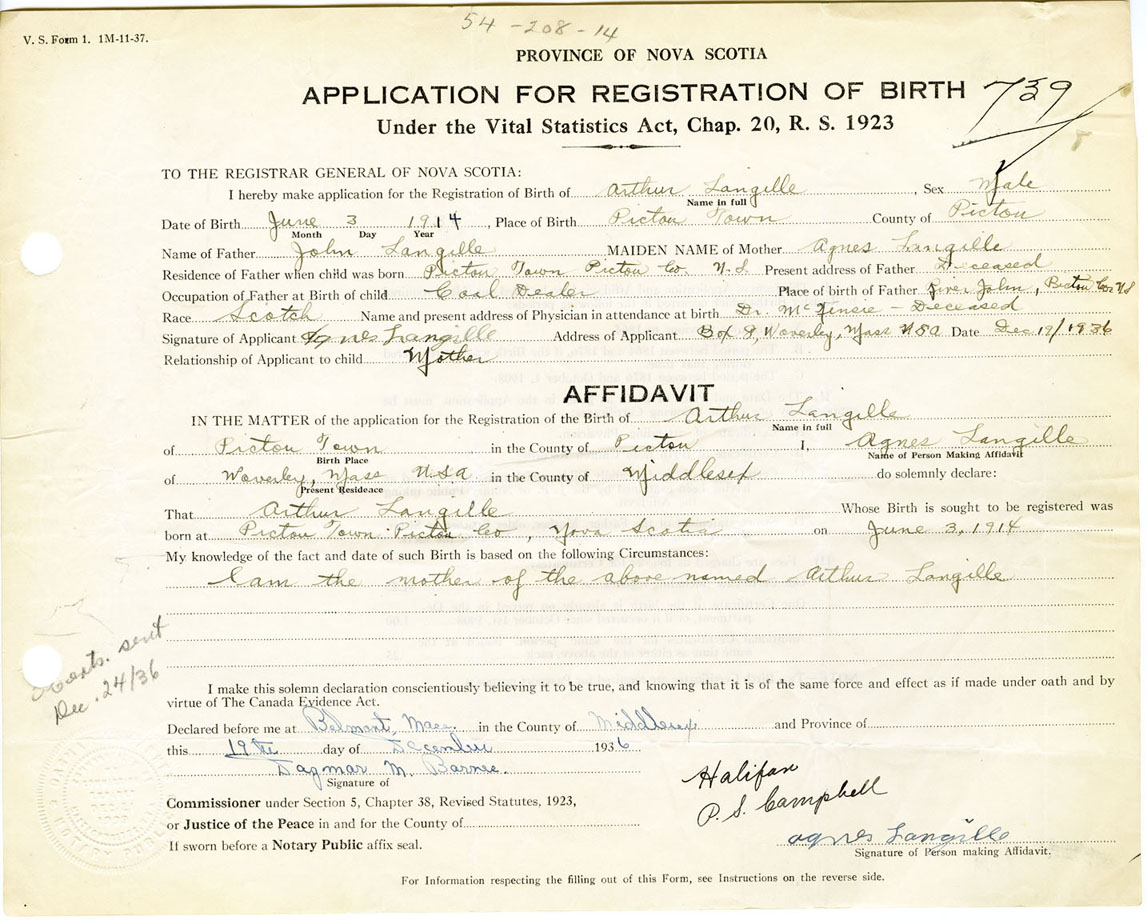 54-208-14
V. S. Form 1. 1M-11-37.
PROVINCE OF NOVA SCOTIA
APPLICATION FOR REGISTRATION OF BIRTH 739
Under the Vital Statistics Act, Chap. 20, R. S. 1923
TO THE REGISTRAR GENERAL OF NOVA SCOTIA:
I hereby make application for the Registration of Birth of Arthur Langille, Sex Male
Name in full
Date of Birth June 3 1914, Place of Birth Pictou Town County of Pictou
Month Day Year
Name of Father John Langille MAIDEN NAME of Mother Agnes Langille
Residence of Father when child was born Pictou Town Pictou Co N.S Present address of Father Deceased
Occupation of Father at Birth of child Coal Dealer Place of birth of Father River John, Pictou Co. N S
Race Scotch Name and present address of Physician in attendance at birth Dr. - Deceased
Signature of Applicant Agnes Langille Address of Applicant Box 9, Waverley, Mass USA Date Dec 19/1936
Relationship of Applicant to child Mother
AFFIDAVIT
IN THE MATTER of the application for the Registration of the Birth of Arthur Langille
Name in full
of Pictou Town in the County of Pictou I, Agnes Langille
Birth Place Name of Person Making Affidavit
of Waverley, Mass USA in the County of Middlesex do solemnly declare:
Present Residence
That Arthur Langille Whose Birth is sought to be registered was
born at Pictou Town Pictou Co, Nova Scotia on June 3, 1914
My knowledge of the fact and date of such Birth is based on the following Circumstances:
I am the mother of the above named Arthur Langille
Certs. sent
Dec. 24/36
I make this solemn declaration conscientiously believing it to be true, and knowing that it is of the same force and effect as if made under oath and by
virtue of The Canada Evidence Act.
Declared before me at Belmont, Mass. in the County of Middlesex and Province of
this 19th day of December 1936
Dagmar M.
Signature of
Halifax
P. S. Campbell
Commissioner under Section 5, Chapter 38, Revised Statutes, 1923,
or Justice of the Peace in and for the County of
If sworn before a Notary Public affix seal.
Agnes Langille
Signature of Person making Affidavit.
For Information respecting the filling out of this Form, see Instructions on the reverse side.